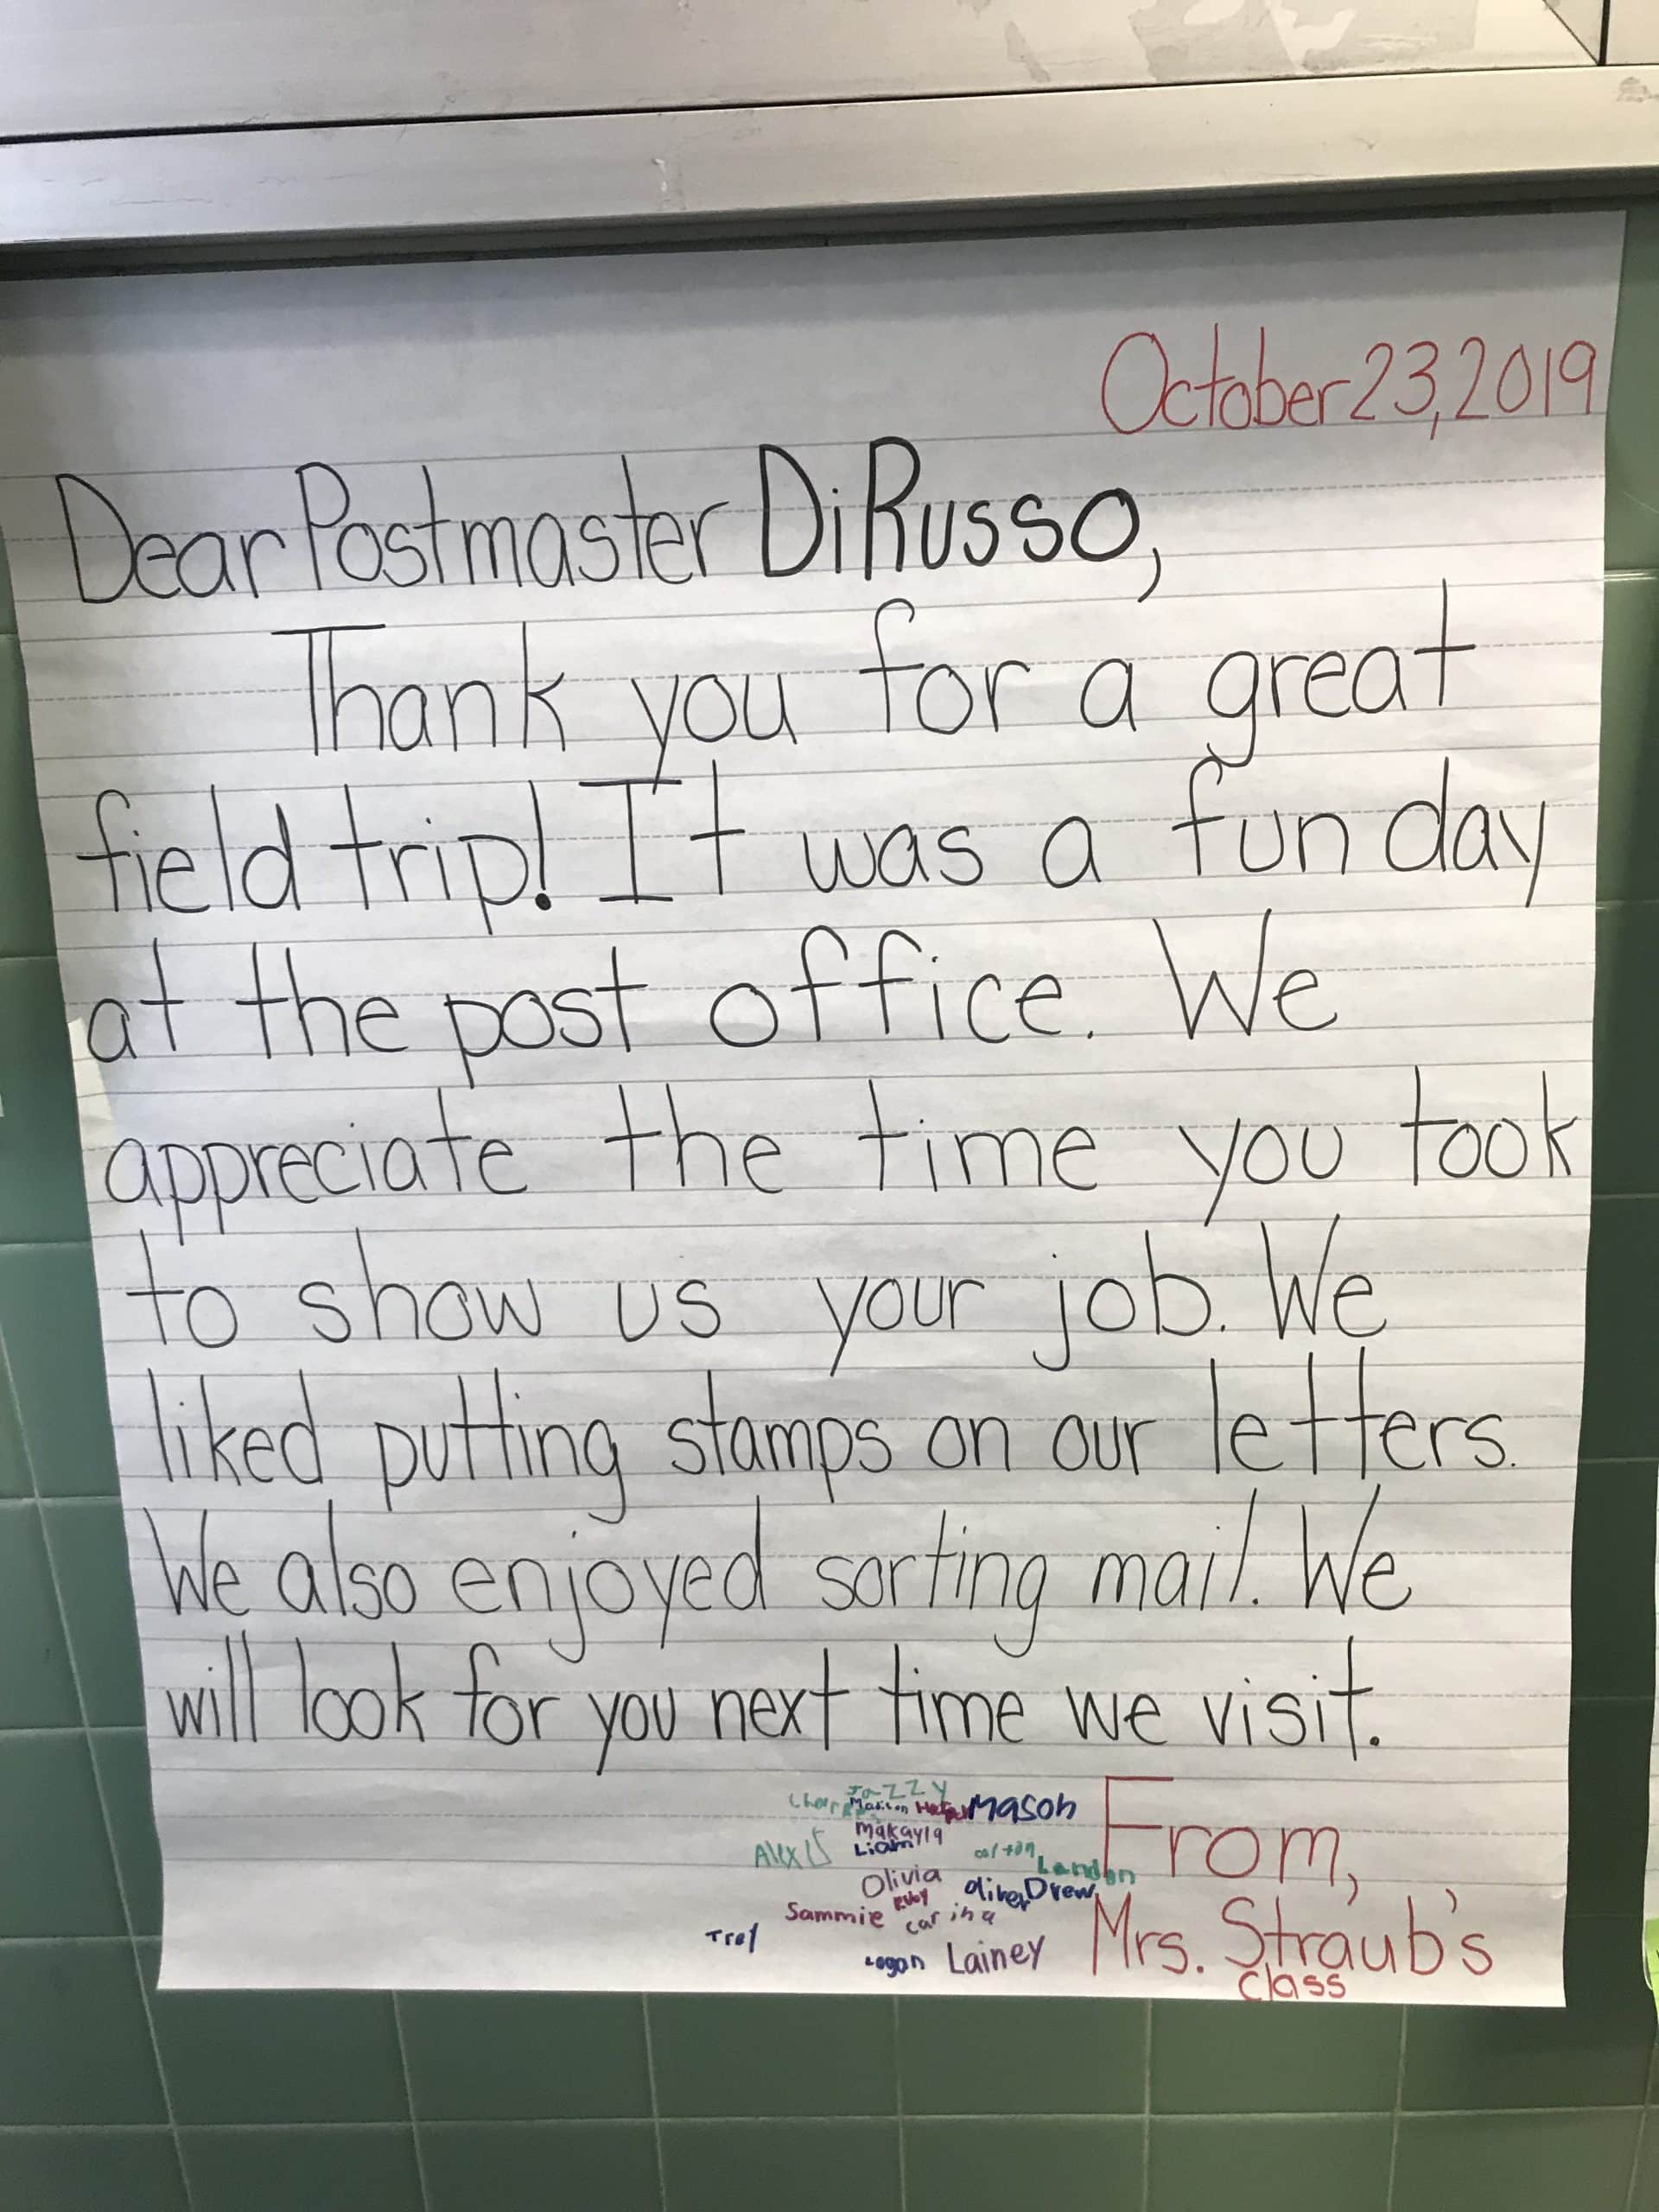 October 23, 2019
Dear Postmaster DiRusso,
Thank you for a great
field trip! It was a fun day
at the post office. We
appreciate the time you took
to show us your job. We
liked putting stamps on our letters.
We also enjoyed sorting mail. We
will look for you next time we visit.
Jazzy
Madison Mason
Makayla
Alexis Liam Colton Landon
Olivia Oliver Drew
Ruby
Sammie Carina
Trey
Logan Lainey
From,
Mrs. Straub's
class